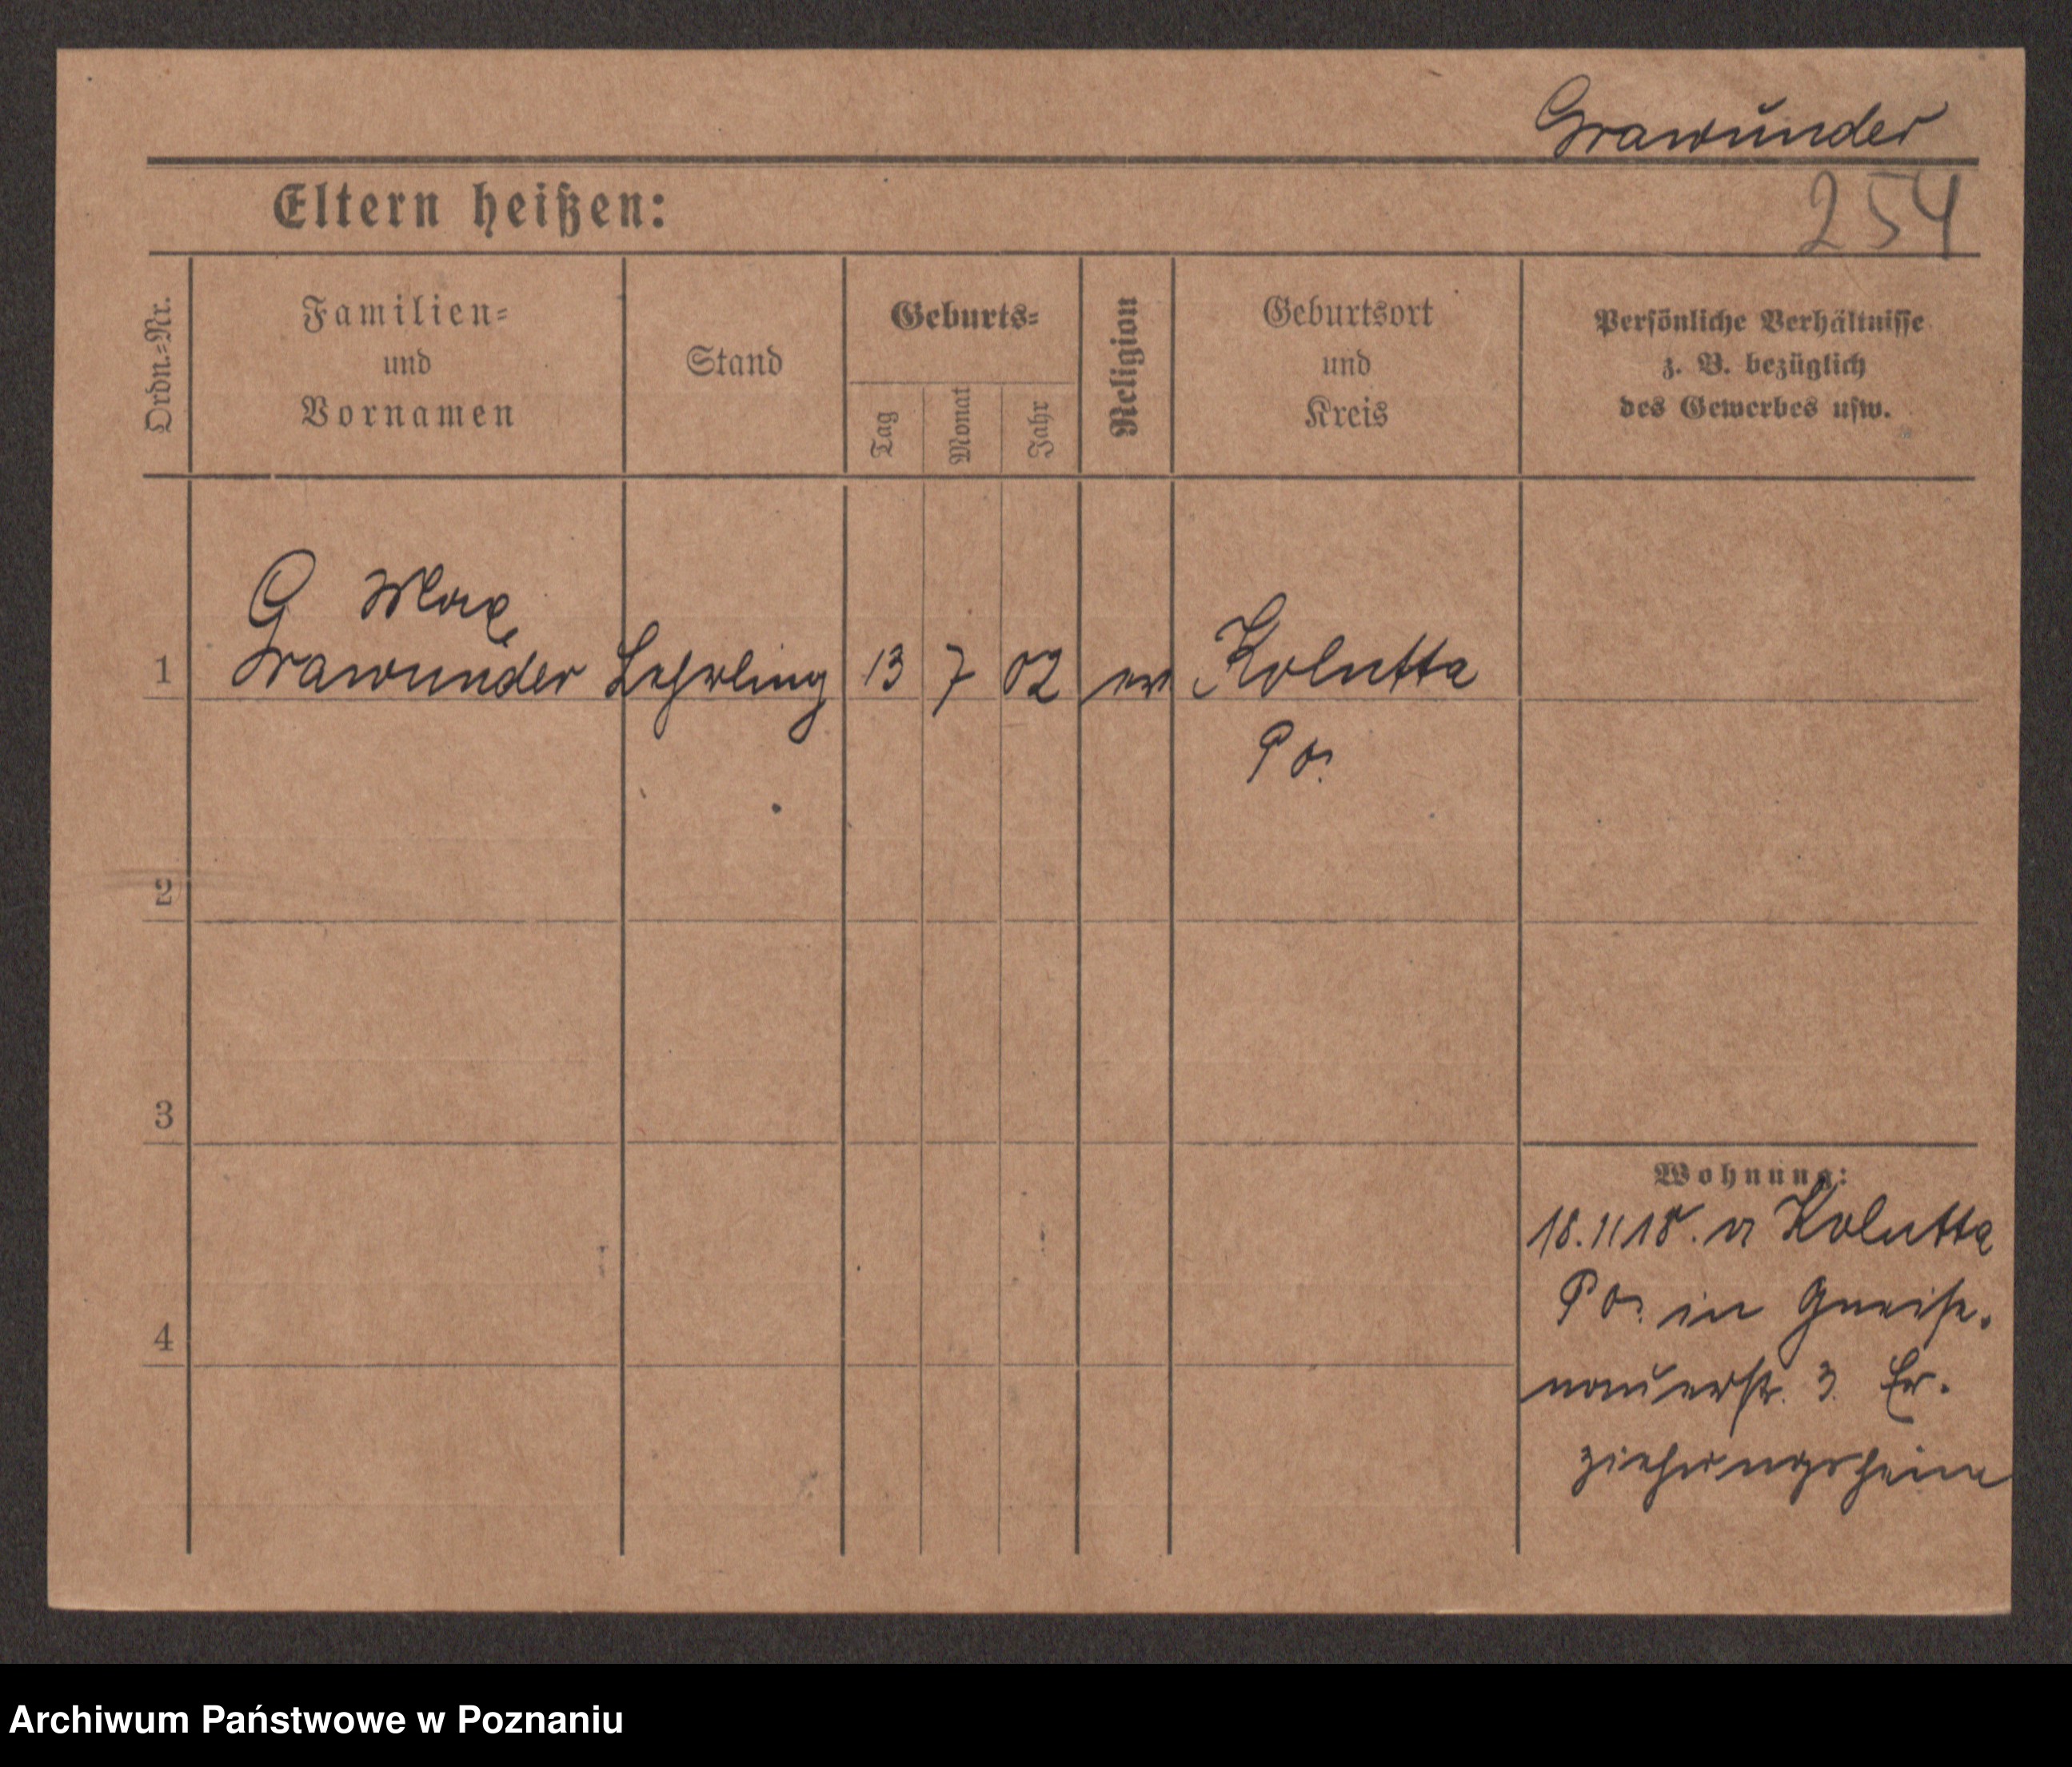 Grawunder
Eltern heißen:
254
Ordn.=Nr.
Familien=
und
Vornamen
Stand
Geburts=
Tag
Monat
Jahr
Religion
Geburtsort
und
Kreis
Persönliche Verhältnisse
z. B. bezüglich
des Gewerbes usw.
G Max
1 Grawunder Lehrling 13 7 02 ev Kolutta
Po.
2
3
4
Wohnung:
18.11 18. a Kolutta
Po. in Gneise.
nauerstr. 3. Er.
ziehungsheim
Archiwum Państwowe w Poznaniu